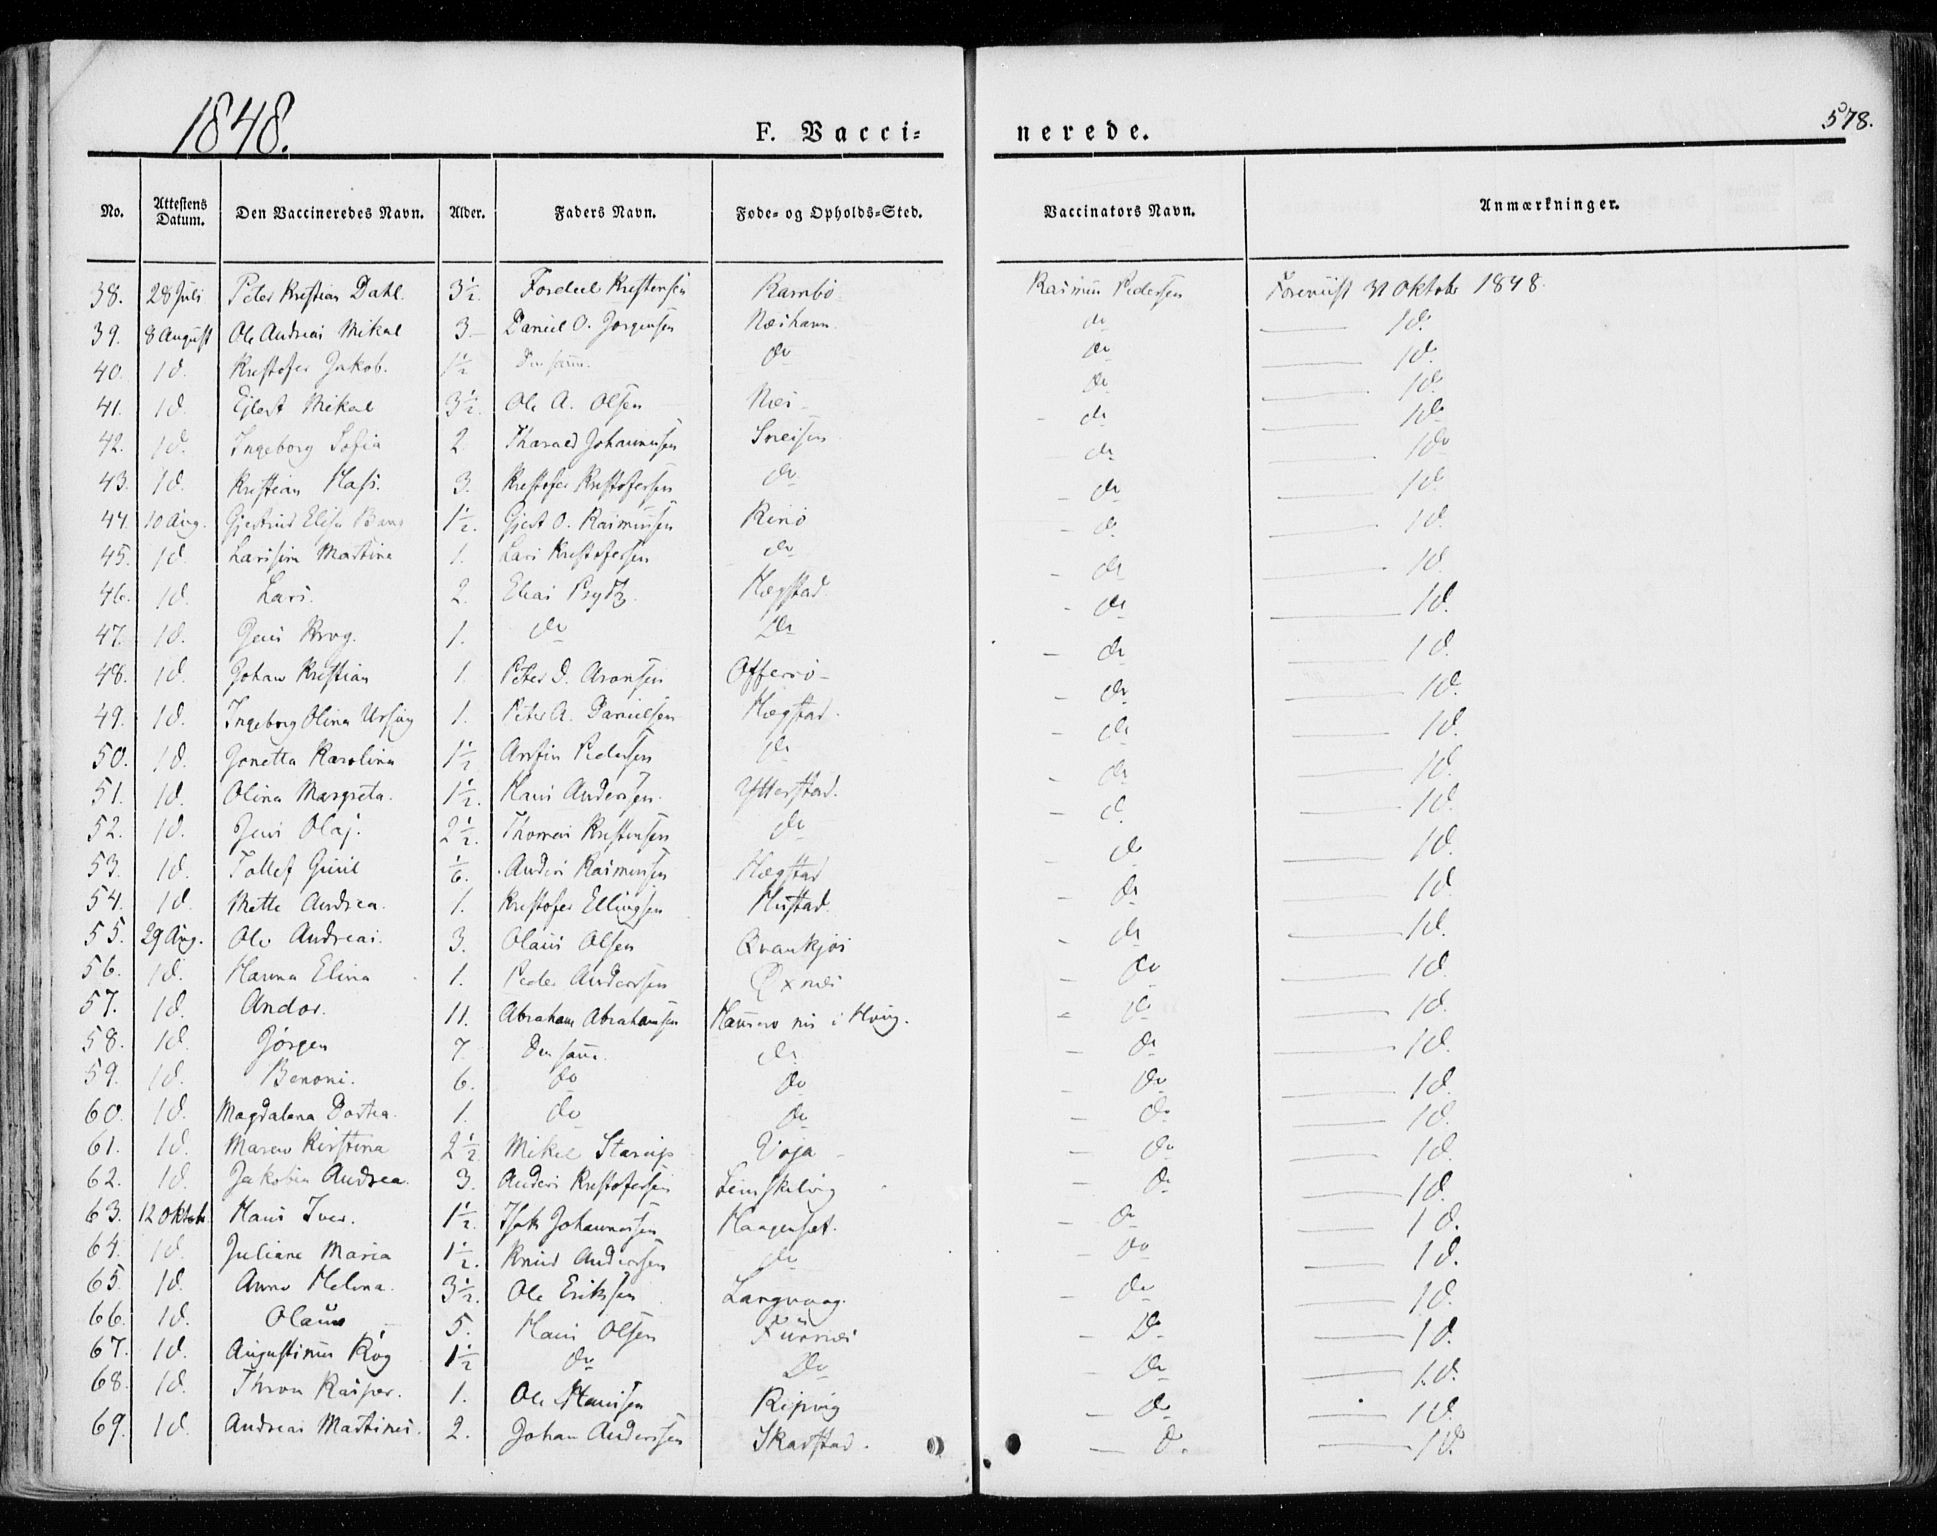 1848.
F. Vacci=
nerede.
578.
No. Attestens Datum. Den Vaccineredes Navn. Alder. Faders Navn. Føde= og Opholds=Sted. Vaccinators Navn. Anmærkninger.
38. 28 Juli Peder Kristian Dahl. 3½. Kristensen Rambø Rasmus Pedersen Foreviist 31 Oktober 1848.
39. 8 August Ole Andreas Mikal 3 Daniel O. Jørgensen Næshavn. do Id.
40. Id. Kristofer Jakob. 1½ Den samme. do do Id.
41. Id. Ejlert Mikal 3½. Ole A. Olsen Næs do Id.
42. Id. Ingeborg Sofia 2. Tharald Johannesen Sneisen do Id.
43. Id. Kristian Hass. 3. Kristofer Kristofersen do do Id.
44. 10 Aug. Gjertrud Elisa Bang 1½. Gjert O. Rasmussen Renø do Id.
45. Id. Larsine Martina 1. Lars Kristofersen do do Id.
46. Id. Lars. 2. Elias Prydz. Hægstad. do Id.
47. Id. Jens Krog. 1. do do do Id.
48. Id. Johan Kristian 1. Peter D. Aronsen Offersø do Id.
49. Id. Ingeborg Olina Ursing 1. Peter A. Danielsen Hægstad. do Id.
50. Id. Jonetta Karolina 1½ Arsten Pedersen do do Id.
51. Id. Olina Margreta. 1½. Hans Anderssen. Ytterstad. do Id.
52. Id. Jens Olaj. 2½. Thomas Kristensen do do Id.
53. Id. Tollef 1/6. Anders Rasmussen Hægstad do Id.
54. Id. Mette Andrea. 1. Kristofer Ellingsen Hustad. do Id.
55. 29 Aug. Ole Andreas. 3. Olaus Olsen Qvankjos do Id.
56. Id. Hanna Elina 1. Peder Anderssen Øxnes do Id.
57. Id. Andor. 11. Abraham Abrahamsen i do Id.
58. Id. Jørgen 7. Den samme. do do Id.
59. Id. Benoni. 6. do do do Id.
60. Id. Magdalena Dortea. 1. do do do Id.
61. Id. Maren Kirstina 2½ Mikel Starup Voja do Id.
62. Id. Jakobine Andrea. 3. Anders Kristofersen do Id.
63. 12 Oktob. Hans Iver. 1½. Isak Johannesen Haagenset. do Id.
64. Id. Juliane Maria 1½. Knud Anderssen do do Id.
65. Id. Anne Helena. 3½. Ole Eriksen Langvaag. do Id.
66. Id. Olaus 5. Hans Olsen Fürnes Do Id.
67. Id. Augustinus Røg 1½ do Do do Id.
68. Id. Thron Kasper. 1. Ole Hansen Ripvig do Id.
69. Id. Andreas Martines. 2. Johan Anderssen Skarstad. do Id.